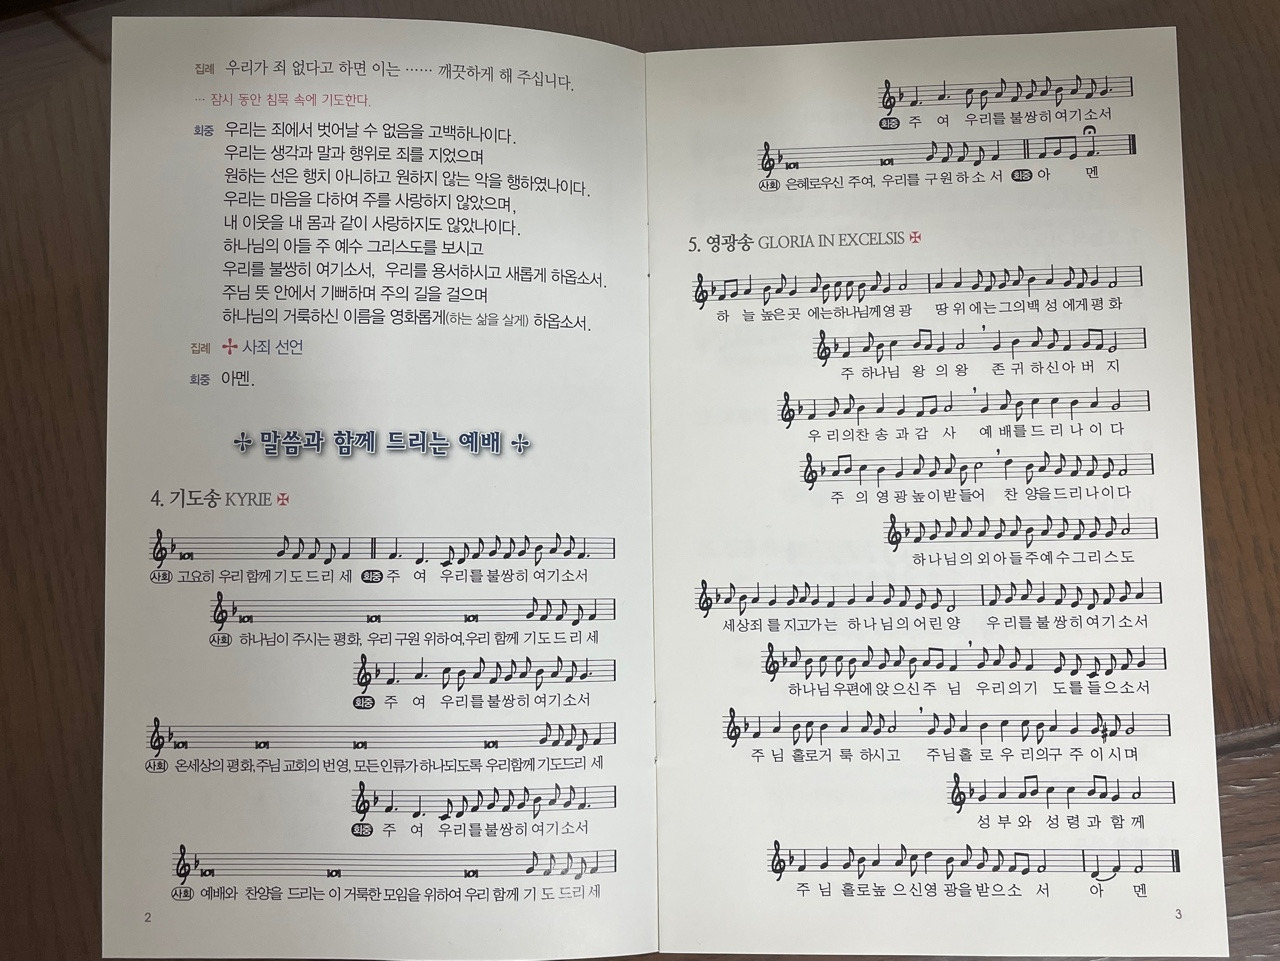 집례 우리가 죄 없다고 하면 이는 …… 깨끗하게 해 주십니다.
… 잠시 동안 침묵 속에 기도한다.
회중 우리는 죄에서 벗어날 수 없음을 고백하나이다.
우리는 생각과 말과 행위로 죄를 지었으며
원하는 선은 행치 아니하고 원하지 않는 악을 행하였나이다.
우리는 마음을 다하여 주를 사랑하지 않았으며,
내 이웃을 내 몸과 같이 사랑하지도 않았나이다.
하나님의 아들 주 예수 그리스도를 보시고
우리를 불쌍히 여기소서, 우리를 용서하시고 새롭게 하옵소서.
주님 뜻 안에서 기뻐하며 주의 길을 걸으며
하나님의 거룩하신 이름을 영화롭게(하는 삶을 살게) 하옵소서.
집례 ✢ 사죄 선언
회중 아멘.
✢ 말씀과 함께 드리는 예배 ✢
4. 기도송 KYRIE ✠
사회 고요히 우리 함께 기 도 드 리 세 회중 주 여 우리를 불쌍히 여기소서
사회 하나님이 주시는 평화, 우리 구원 위하여, 우리 함께 기 도 드 리 세
회중 주 여 우리를 불쌍히 여기소서
사회 온 세상의 평화, 주님 교회의 번영, 모든 인류가 하나되도록 우리 함께 기도드리 세
회중 주 여 우리를 불쌍히 여기소서
사회 예배와 찬양을 드리는 이 거룩한 모임을 위하여 우리 함께 기 도 드리 세
2
회중 주 여 우리를 불쌍히 여기소서
사회 은혜로우신 주여, 우리를 구원하소서 회중 아 멘
5. 영광송 GLORIA IN EXCELSIS ✠
하 늘 높은 곳 에는 하나님께 영 광 땅 위 에는 그의 백 성 에게 평 화
주 하나님 왕 의 왕 존 귀 하신 아 버 지
우 리 의 찬 송 과 감 사 예 배를 드 리 나 이 다
주 의 영 광 높이 받들어 찬 양을 드리나이다
하나님의 외아들 주 예수 그리스도
세상죄 를 지고가는 하나님의 어린 양 우리를 불쌍히 여기소서
하나님 우편에 앉으신 주 님 우리의 기 도를 들으소서
주 님 홀로 거 룩 하시고 주님 홀 로 우 리의 구 주 이시며
성 부 와 성 령 과 함 께
주 님 홀로 높 으신 영 광을 받으소 서 아 멘
3